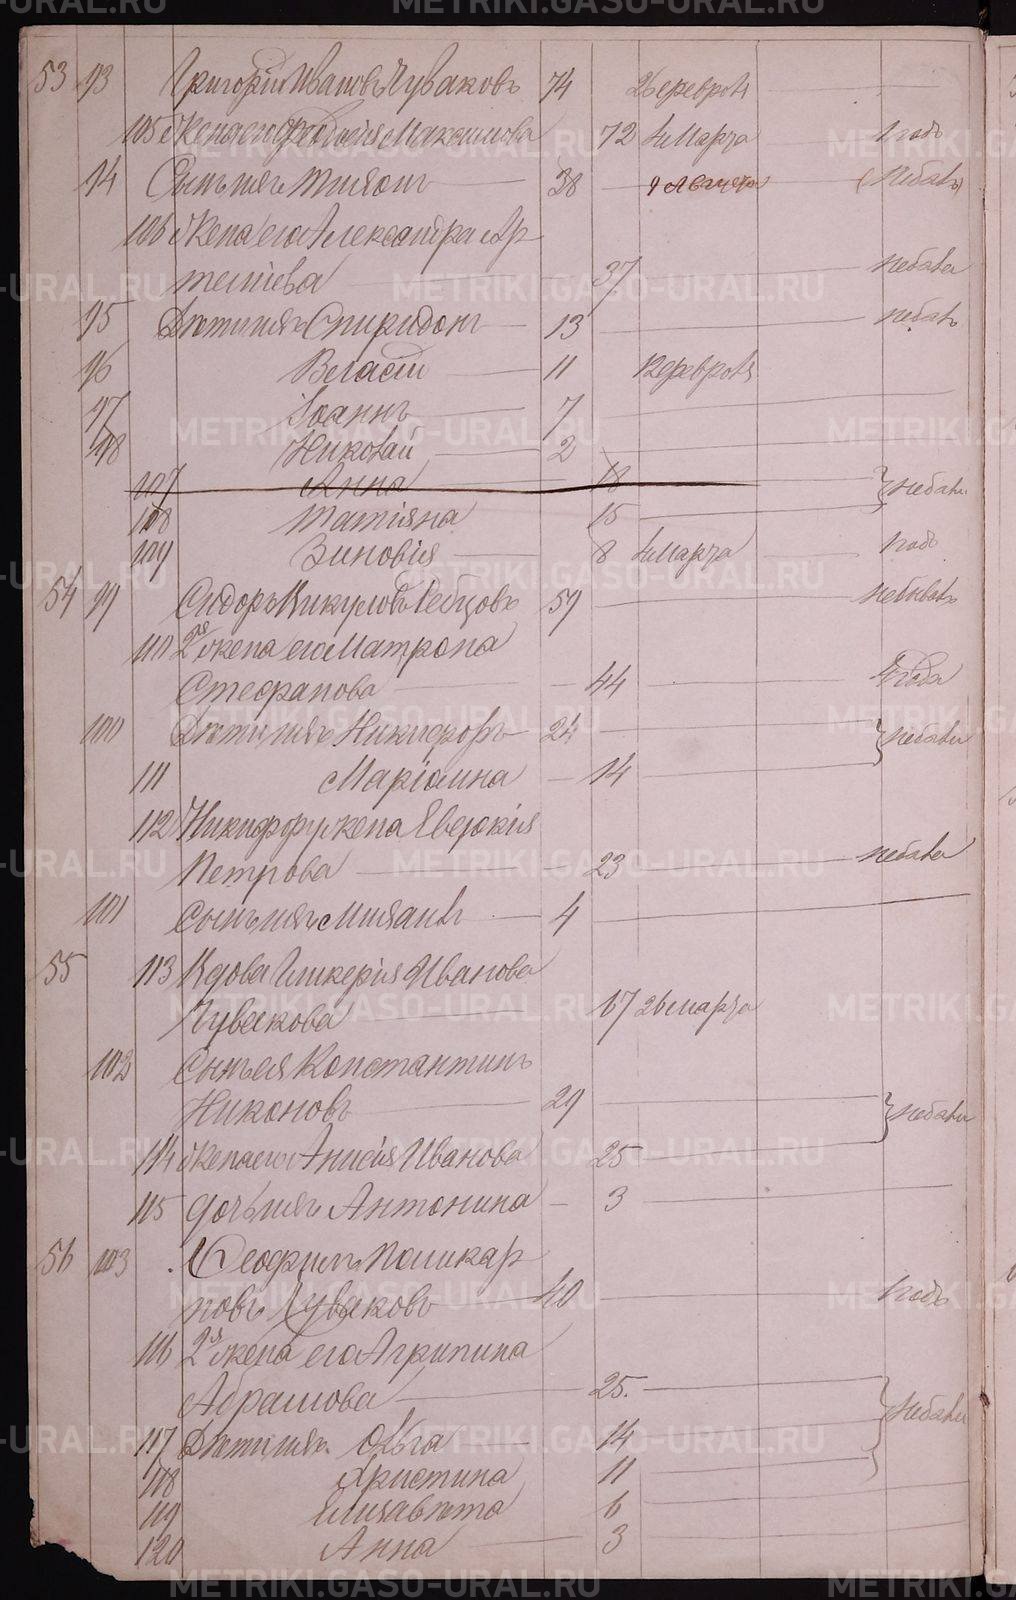 53 93 Григорій Ивановъ Чуваковъ 74 26 февраля
105 Жена его Ѳеодосія Максимова 72 4 Марта 1 годъ
94 Сынъ ихъ Тихонъ 38 (небылъ)
106 Жена его Александра Ар
темьева 37 небыла
95 Дѣти ихъ Спиридонъ 13 небылъ
96 Власій 11 12 февраля
97 Іоаннъ 7
98 Николай 2
107 Анна 18
108 Татіяна 15 небыли
109 Зиновія 8 4 Марта 1 годъ
54 99 Сидоръ Викуловъ 59 небывалъ
110 2я жена его Матрона
Стефанова 44 года
100 Дѣти ихъ Никифоръ 24 небыли
111 Маріамна 14
112 Никифору жена Евдокія
Петрова 23 небыла
101 Сынъ ихъ 4
55 113 Вдова Гликерія Иванова
Чувакова 67 26 марта
102 Сынъ ея Константинъ
Никоновъ 29 небыли
114 Жена его Анисія Иванова 25
115 Дочь ихъ Антонина 3
56 103 Ѳеофилъ Поликар
повъ Чуваковъ 40 1 годъ
116 2я жена его Агрипина
Абрамова 25. небыли
117 Дѣти ихъ Ольга 14
118 Христина 11
119 Елисавѣта 6
120 Анна 3
METRIKI.GASO-URAL.RU